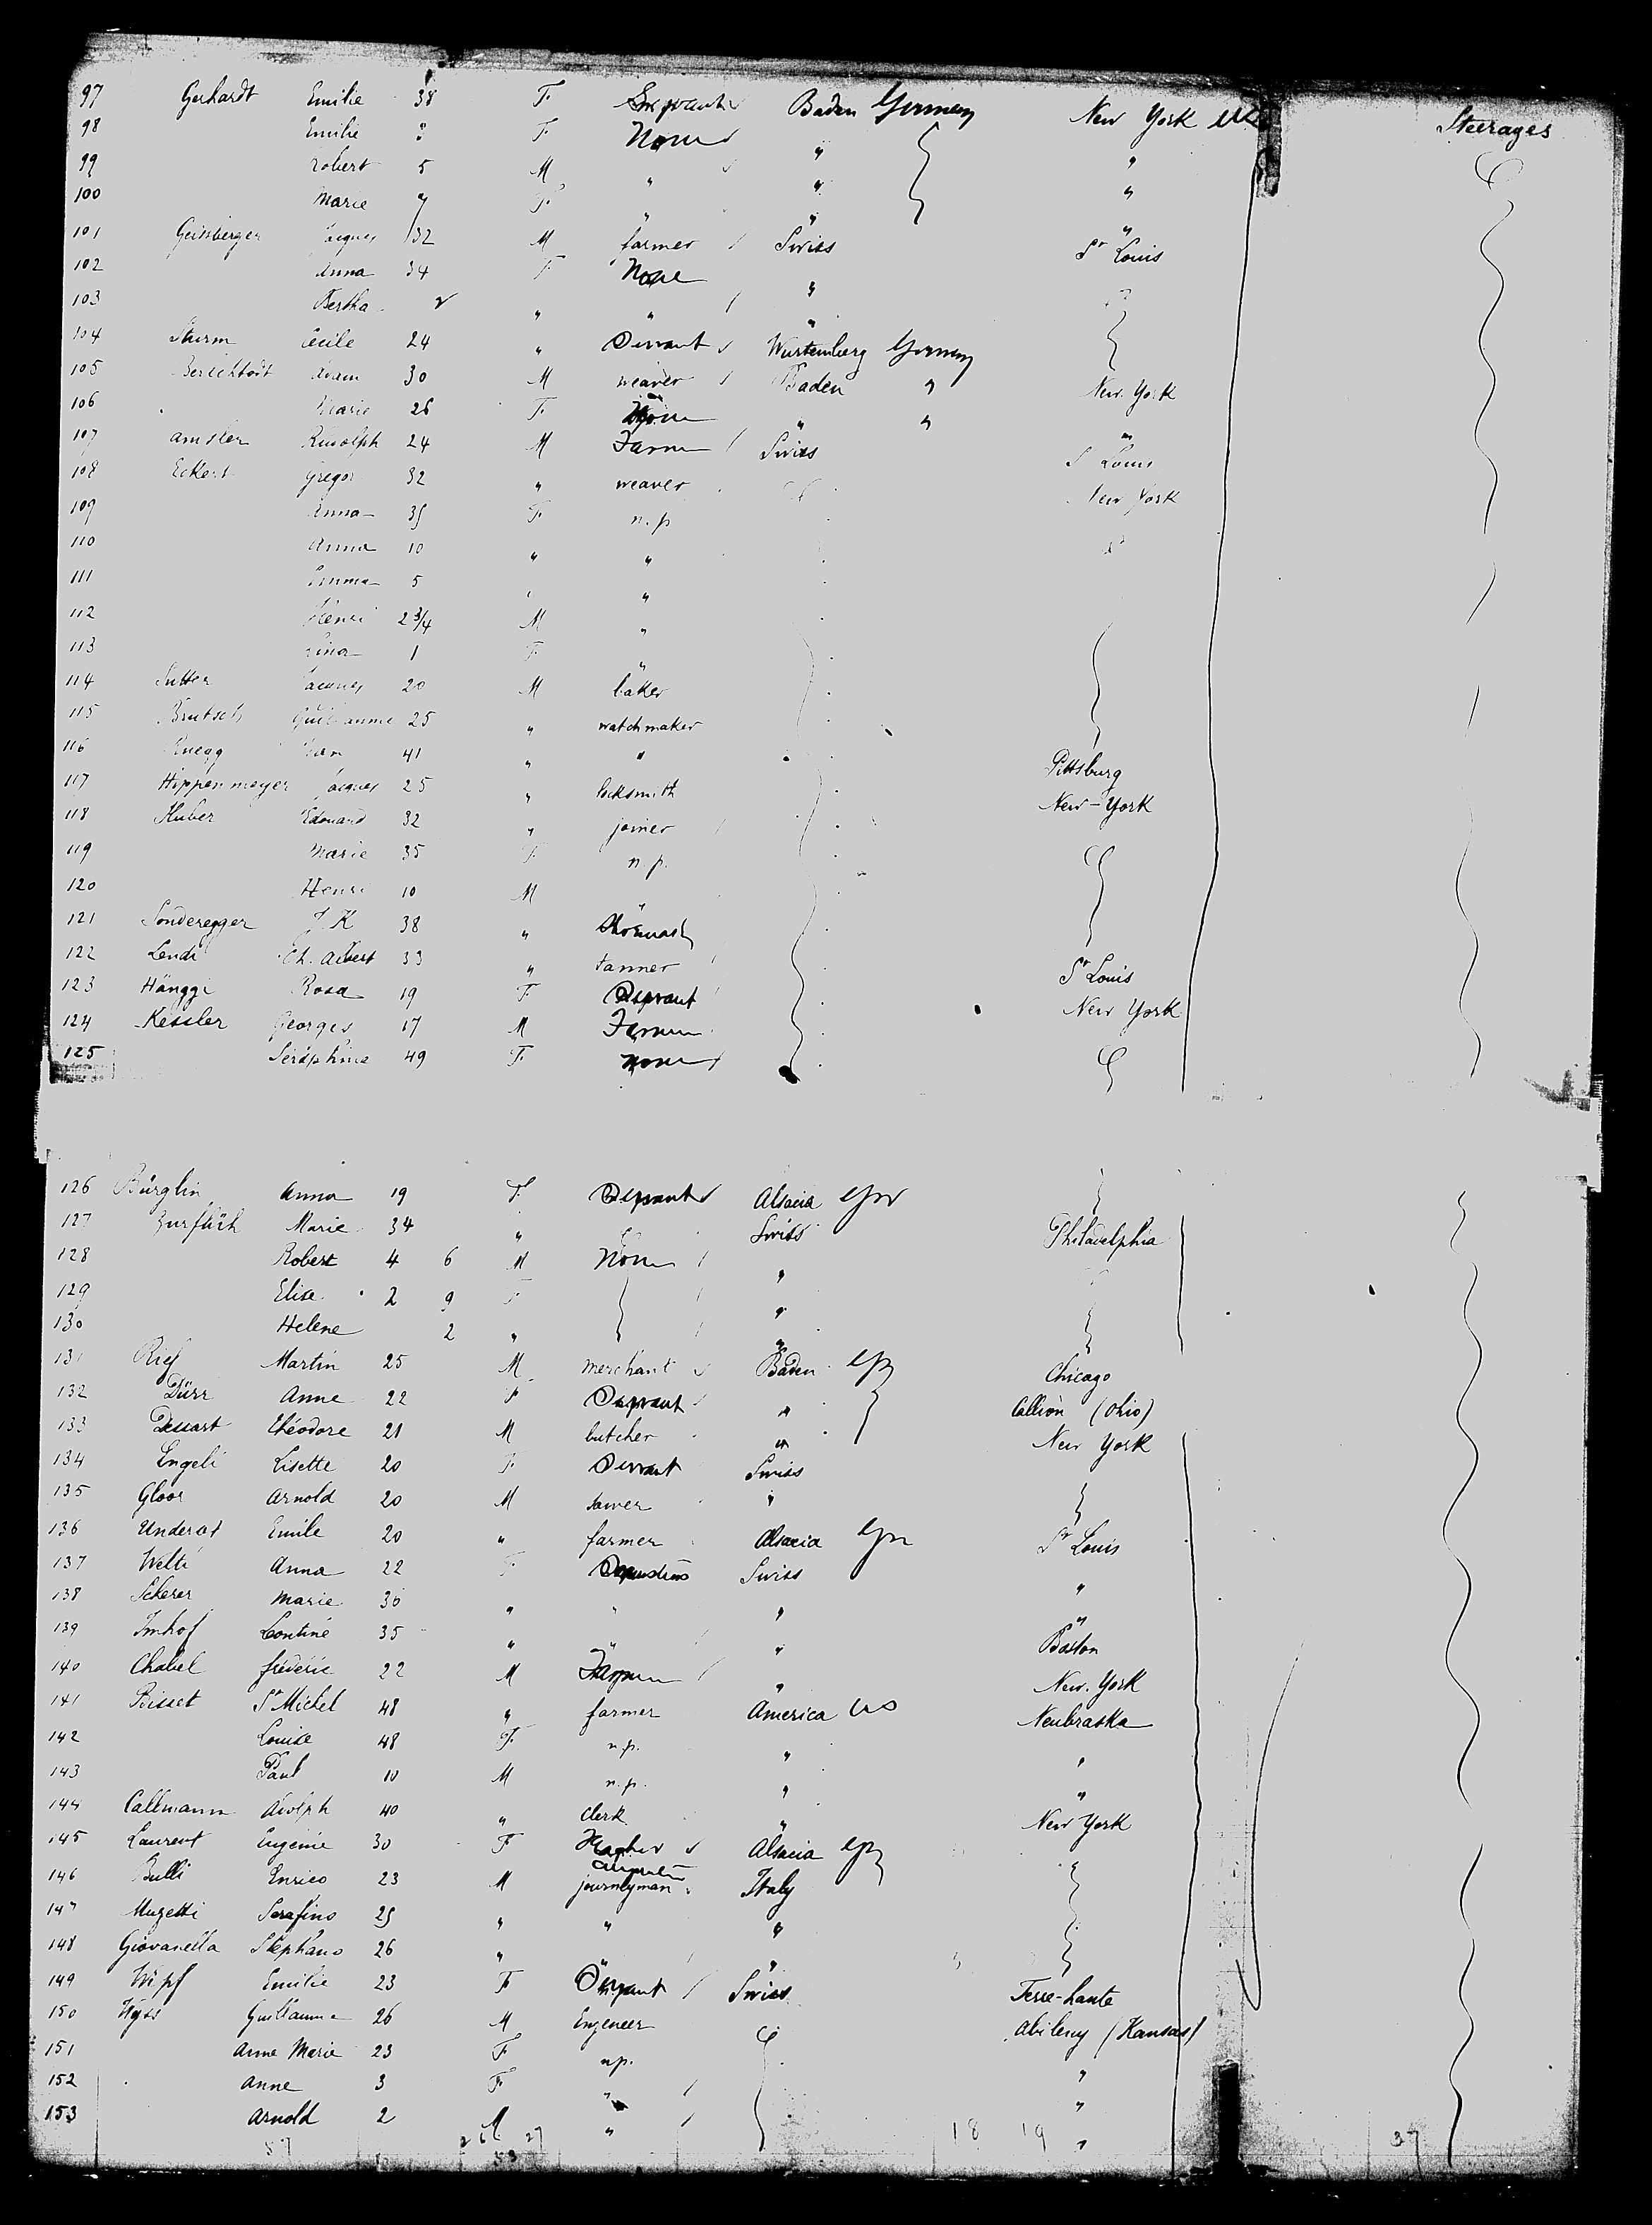 97 Gerhardt Emilie 38 F. Servant Baden Germany New York Steerages
98 Emilie F None " "
99 Robert 5 M " " "
100 Marie F. " " "
101 Geissberger Jaques 32 M farmer Swiss St Louis
102 Anna 34 F None "
103 Bertha " " "
104 Sturm Cecile 24 " Servant Wurtemberg Germany
105 Adam 30 M weaver Baden " New York
106 Marie 26 F. None " " "
107 Amsler Rudolph 24 M Farmer Swiss St Louis
108 Eckert Gregor 32 " weaver New York
109 Anna 35 F. n.p
110 Anna 10 " "
111 Emma 5 "
112 Henri 2 3/4 M "
113 Lina 1 F. "
114 Sutter Jacques 20 M baker
115 Brutsch Guillaume 25 " watchmaker
116 Ruegg Jean 41 " " Pittsburg
117 Hippenmeyer Jacques 25 " locksmith New-York
118 Huber Edouard 32 " joiner
119 Marie 35 F. n.p.
120 Henri 10 M "
121 Sonderegger J. K 38 "
122 Lendi Ch. Albert 33 " tanner St Louis
123 Hänggi Rosa 19 F Servant New York
124 Kessler Georges 17 M Farmer
125 Séraphine 49 F. None
126 Bürglin Anna 19 F. Servant Alsacia Ger
127 Zurflüh Marie 34 " Swiss Philadelphia
128 Robert 4 6 M None "
129 Elise 2 9 F "
130 Helene 2 " "
131 Rief Martin 25 M merchant Baden Chicago
132 Dürr Anne 22 F Servant " (Ohio)
133 Dessart Théodore 21 M butcher " New York
134 Engeli Lisette 20 F. Servant Swiss
135 Gloor Arnold 20 M "
136 Underot Emile 20 " farmer Alsacia Ger St Louis
137 Welti Anna 22 F Swiss "
138 Scherer Marie 30 " " " "
139 Imhof Leontine 35 " " " Boston
140 Chatel frédéric 22 M Farmer " New. York
141 Bisset St Michel 48 " farmer America US Neubraska
142 Louise 48 F. n.p. " "
143 Paul 10 M n.p. " "
144 Callmann Adolph 40 " clerk " New York
145 Laurent Eugénie 30 F Alsacia
146 Bulli Enrico 23 M journeyman Italy
147 Muzetti Serafino 25 " " "
148 Giovanella Stephano 26 " " "
149 Wipf Emilie 23 F Servant Swiss Terre-haute
150 Wyss Guillaume 26 M Engeneer Abileny (Kansas)
151 Anne Marie 23 F n.p. "
152 Anne 3 F. " "
153 Arnold 2 M " "
57 26 27 18 19 37
53